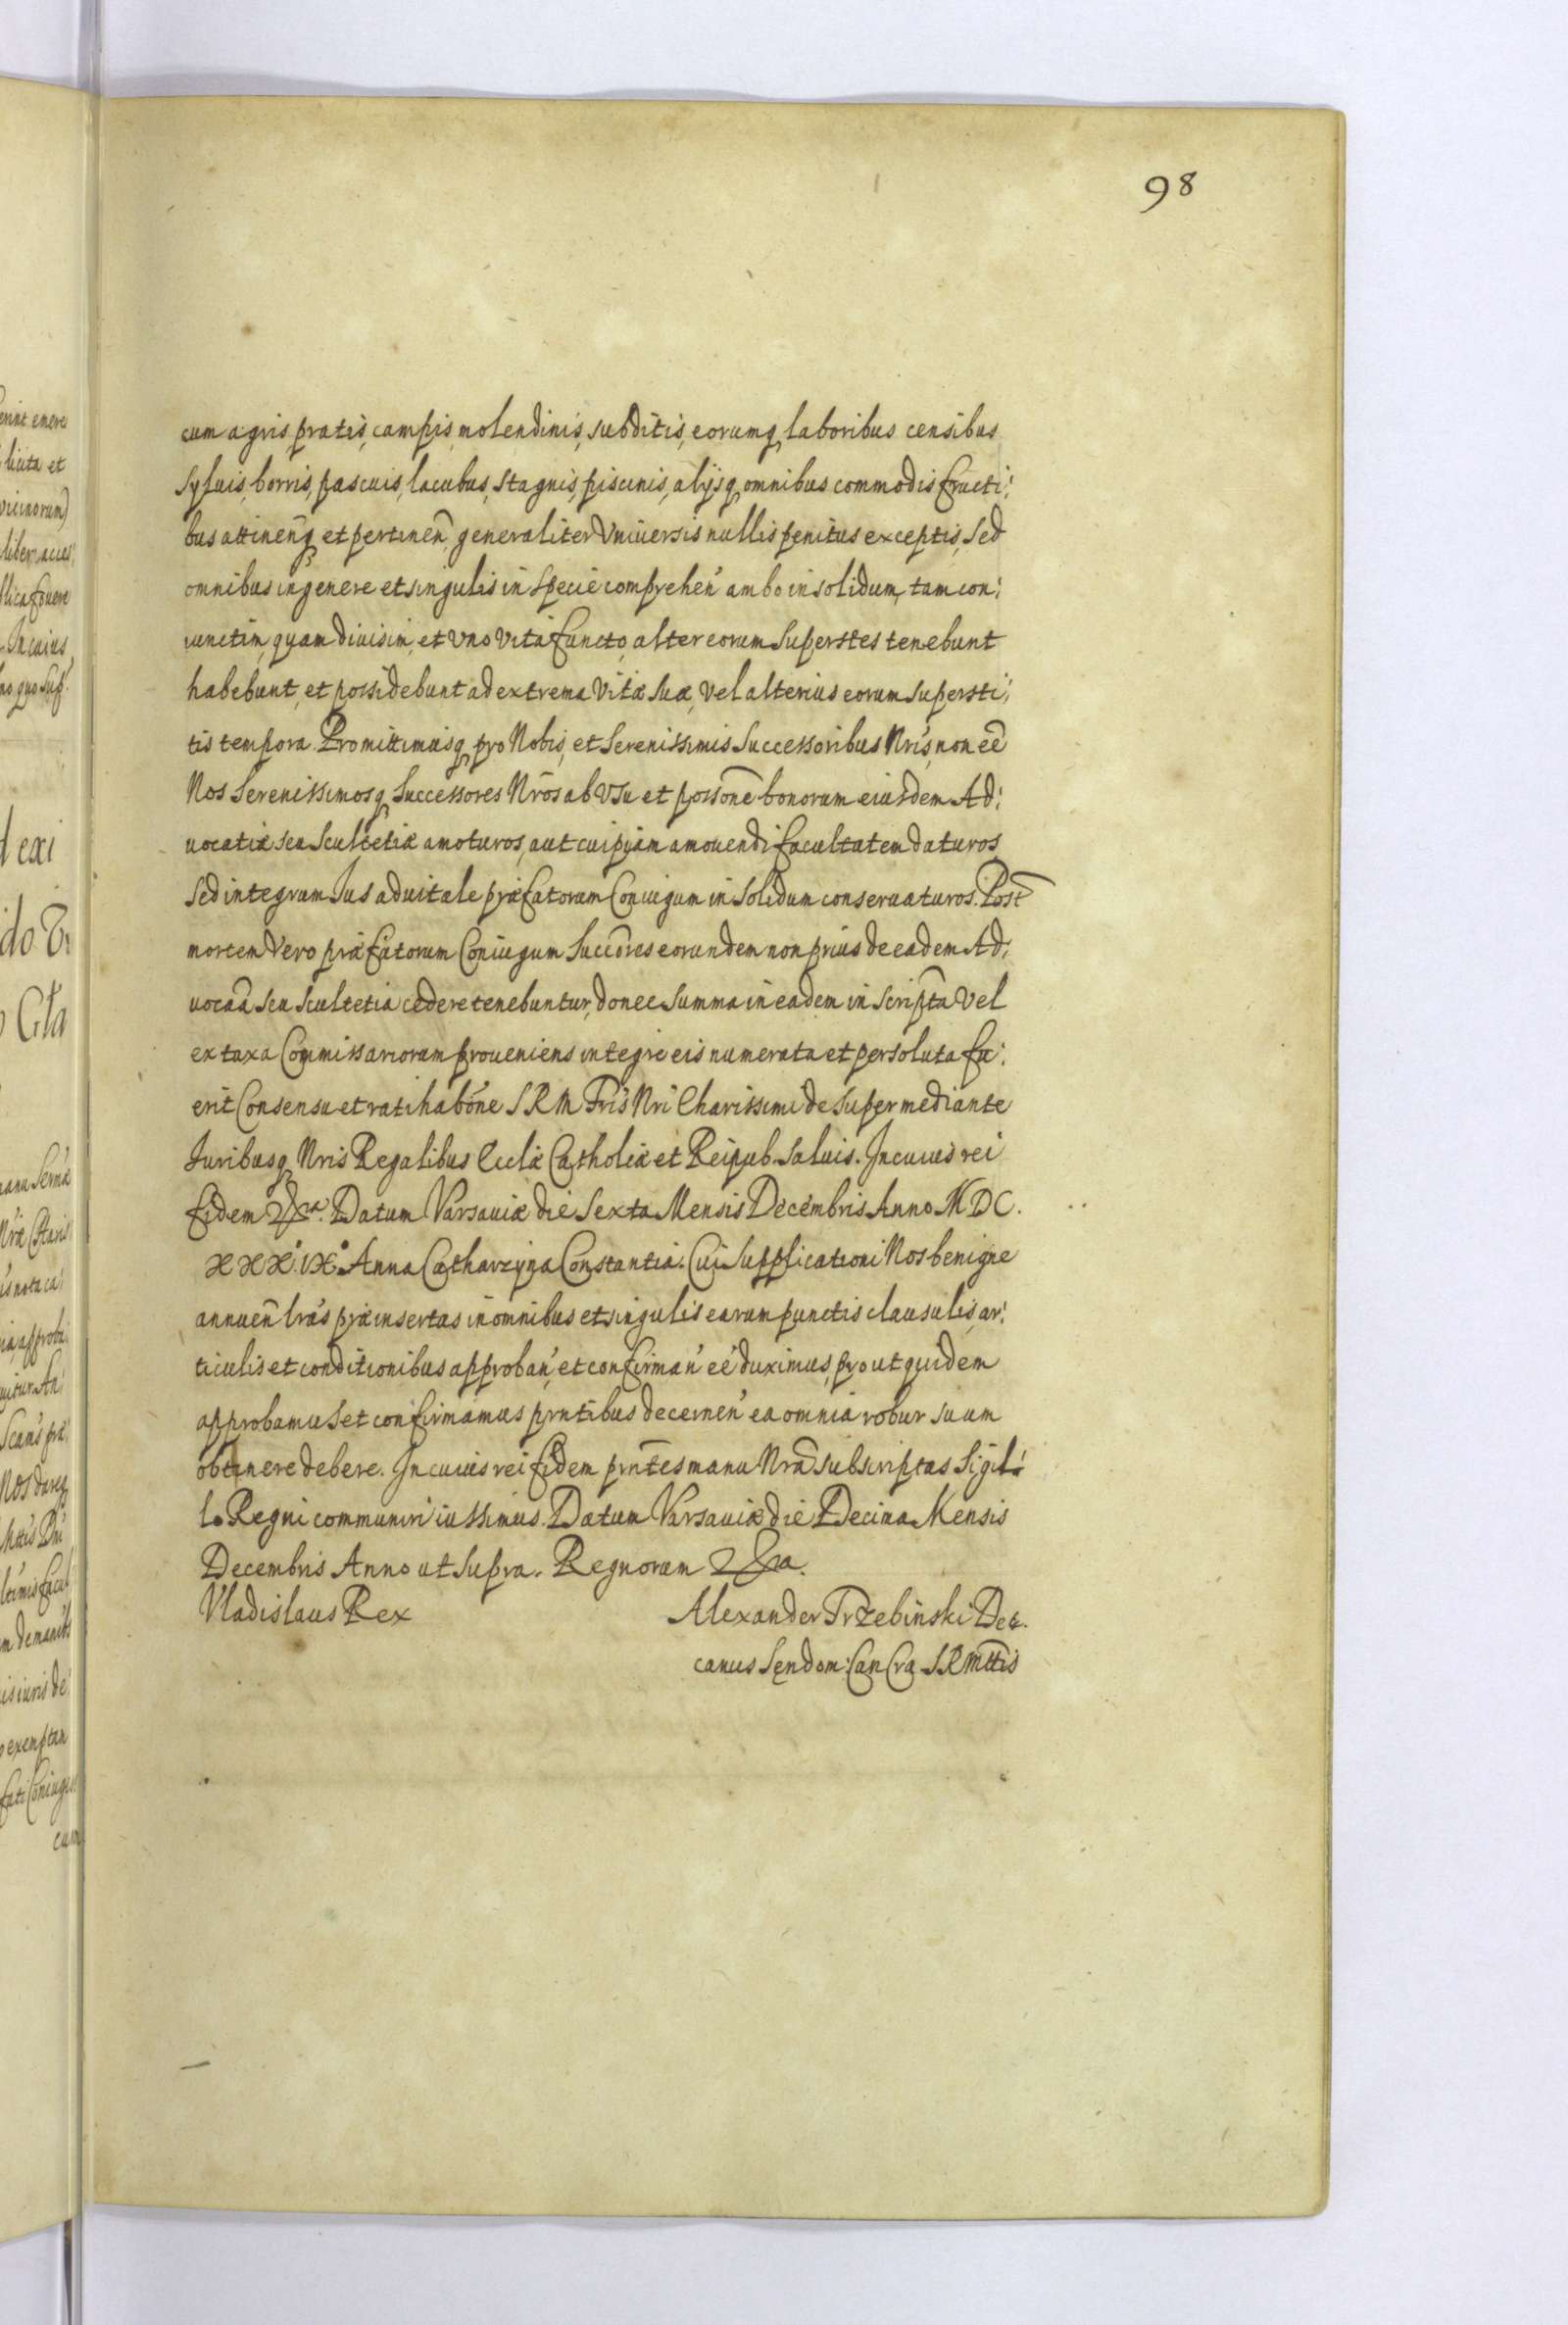 98
cum agris, pratis, campis, molendinis, subditis, eorumq, laboribus censibus
Syluis, borris, pascuis, lacubus, stagnis, piscinis, alijsq, omnibus commodis fructi:
bus attinenq, et pertinen, generaliter Vniuersis nullis penitus exceptis, Sed
omnibus in genere et singulis in specie comprehen ambo in solidum, tam con:
iunctim, quam diuisim, et Vno Vita functo, alter eorum Superstes tenebunt
habebunt, et possidebunt ad extrema Vitæ suæ, Vel alterius eorum supersti:
tis tempora. Promittimusq, pro Nobis, et Serenissimis Successoribus Nris, non eē
Nos Serenissimosq, Successores Nrōs ab Vsu et possōne bonorum eiusdem Ad:
uocatiæ seu Scultetiæ amoturos, aut cuipiam amouendi facultatem daturos,
Sed integrum Jus aduitale præfatorum Coniugum in solidum conseruaturos. Post
mortem Vero præfatorum Coniugum Succōres eorundem non prius de eadem Ad:
uocaā seu Scultetia cedere tenebuntur, donec Summa in eadem inscripta Vel
ex taxa Commissariorum proueniens integre eis numerata et persoluta fu:
erit Consensu et ratihabōne S R M Fris Nri Charissimi desuper mediante
Juribusq, Nris Regalibus Ecclæ Catholiæ et Reipub. saluis. In cuius rei
fidem &ra. Datum Varsauiæ die Sexta Mensis Decembris Anno M D C.
XXX. IX. Anna Catharzyna Constantia. Cui Supplicationi Nos benigne
annuen lrās præinsertas in omnibus et singulis earum punctis clausulis, ar:
ticulis et conditionibus approban, et confirman eē duximus, prout quidem
approbamus et confirmamus prntibus decernen ea omnia robur suum
obtinere debere. In cuius rei fidem prntes manu Nrā subscriptas Sigil:
lo Regni communiri iussimus. Datum Varsauiæ die Decima Mensis
Decembris Anno ut Supra. Regnorum &ra.
Vladislaus Rex Alexander Trzebinski De:
canus Sędom: Can Cra S R Mttis